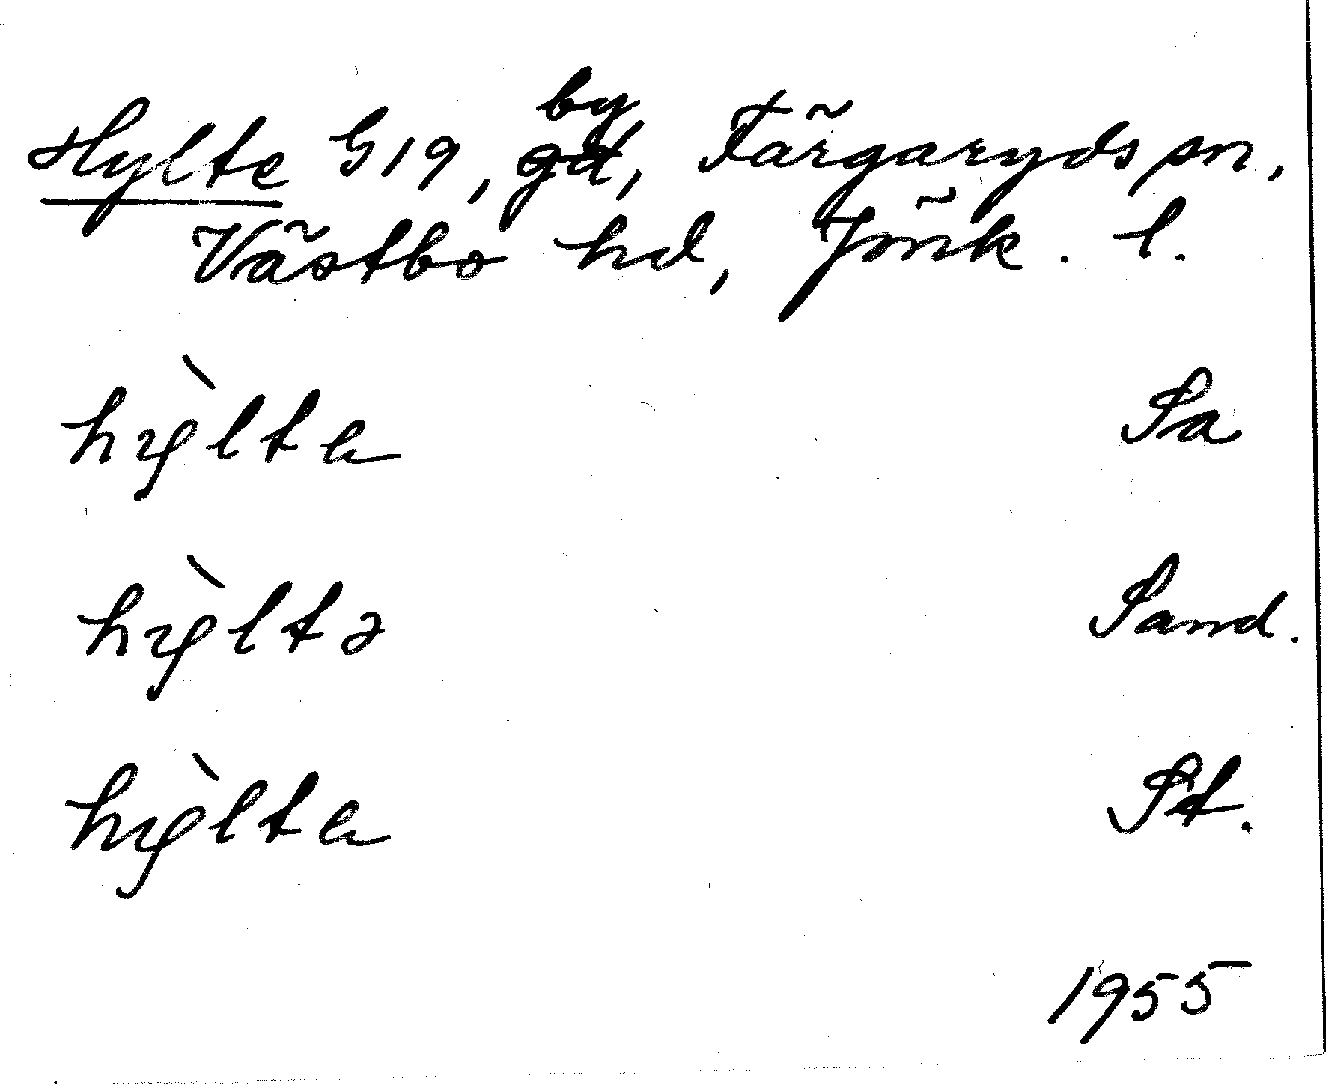 by
Hylte G19, gd, Färgaryds sn,
Västbo hd, Jönk. l.
hỳlte Sa
hỳltə Sand.
hỳlte St.
1955